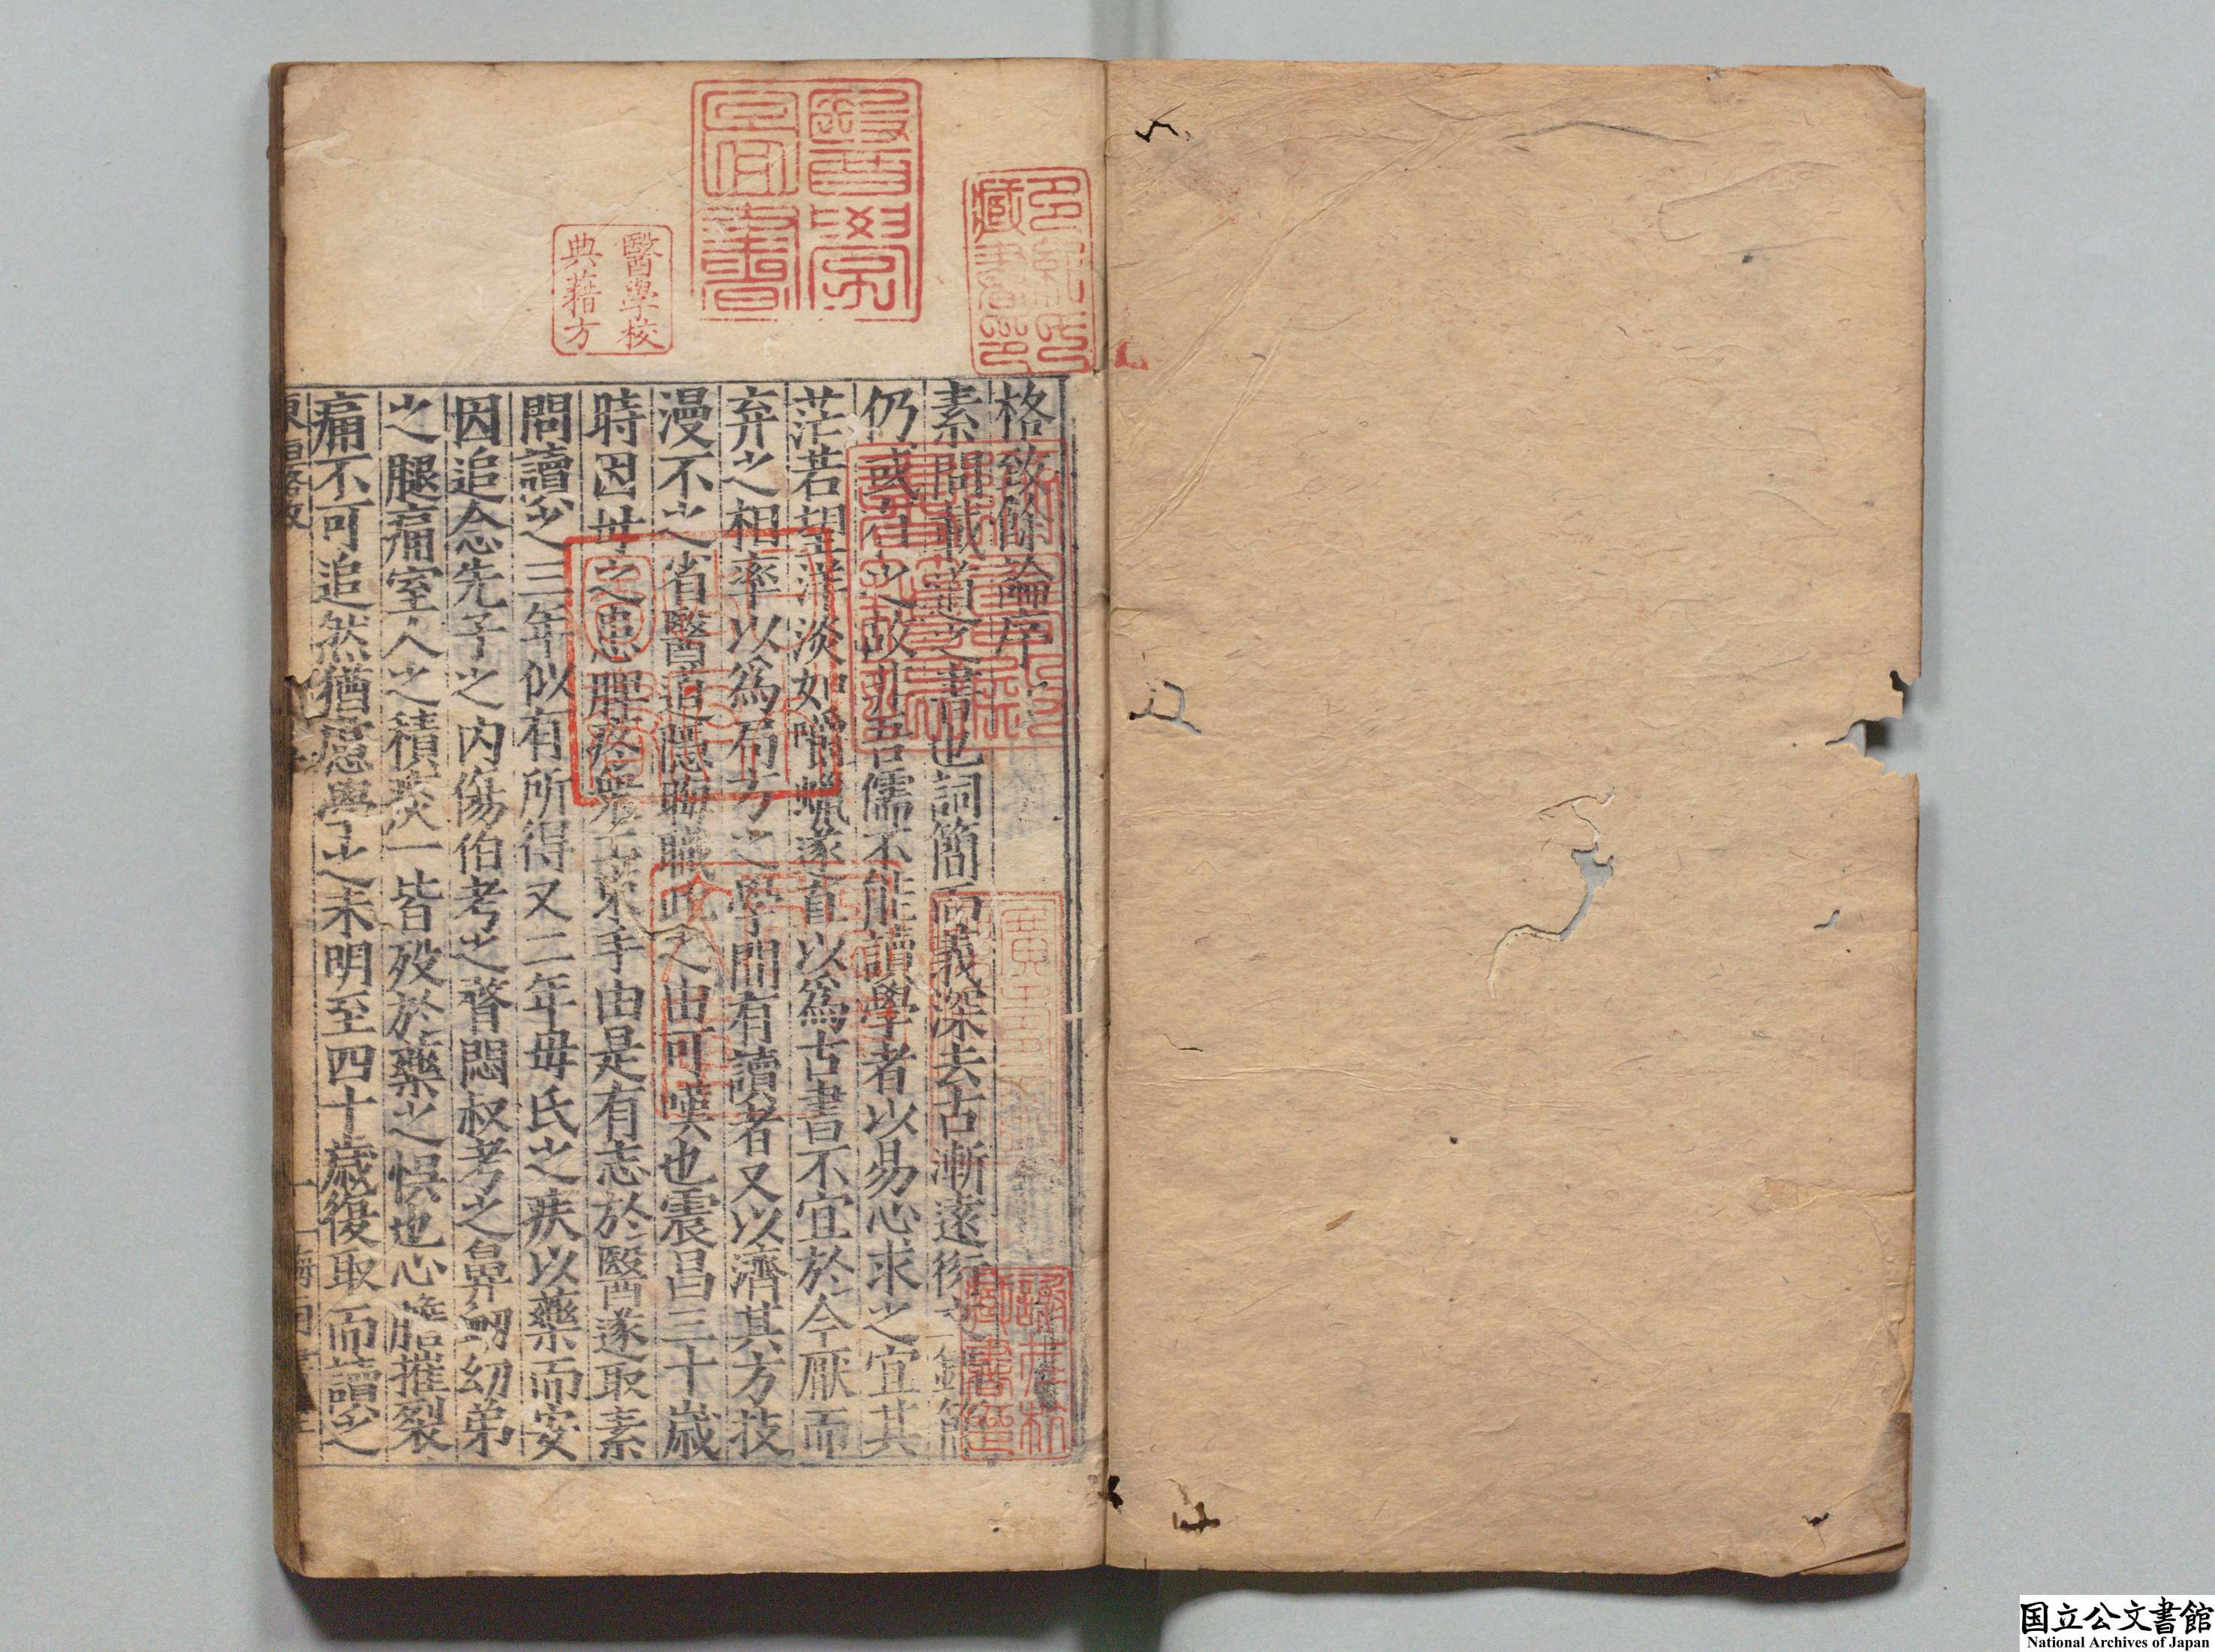 格致餘論序
素問載道之書也詞簡而義深去古漸遠衍文錯簡
仍或有之故非吾儒不能讀學者以易心求之宜其
茫若望洋淡如嚼蠟遂直以爲古書不宜於今厭而
弃之相率以爲局方之學間有讀者又以濟其方技
漫不之省醫道隱晦職此之由可嘆也震昌三十歲
時因母之患脾疼衆工束手由是有志於醫遂取素
問讀之三年似有所得又二年母氏之疾以藥而安
因追念先子之內傷伯考之瞀悶叔考之鼻衂幼弟
之腿痛室人之積痰一皆殁於藥之悞也心膽摧裂
痛不可追然猶慮學之未明至四十歲復取而讀之
醫學
圖書
醫學校
典藉方
多紀氏
藏書印
躋壽殿
書籍記
国立公文書館
National Archives of Japan